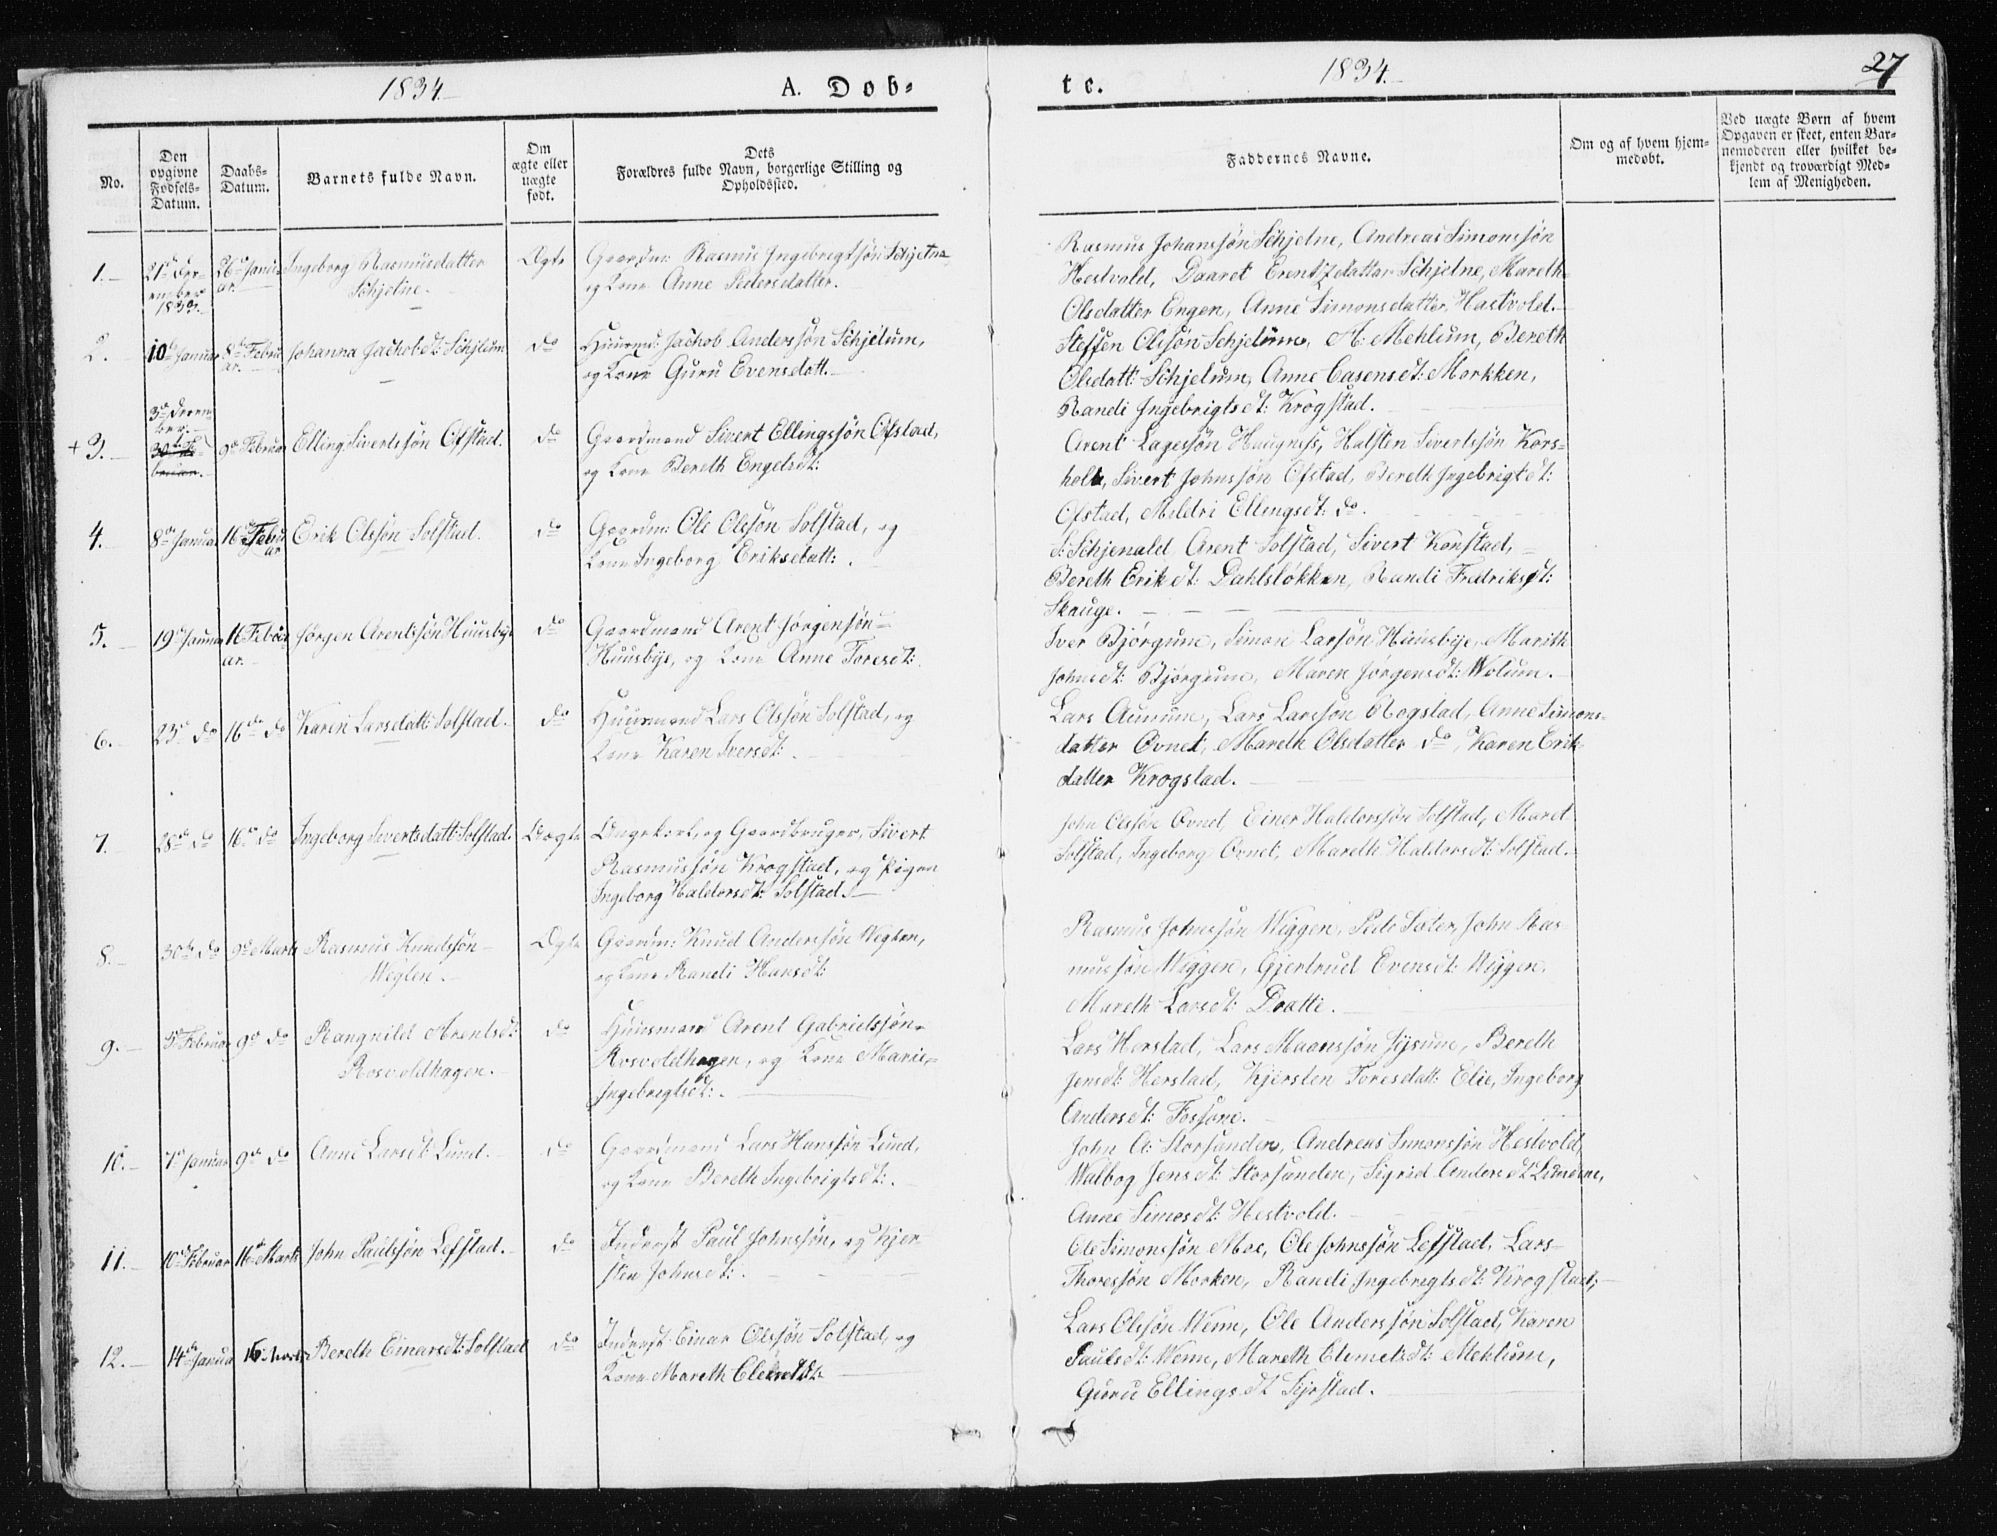 1834.
A. Döb-
te.
1834.
27
No.
Den
opgivne
Födsels-
Datum.
Daabs-
Datum.
Barnets fulde Navn.
Om
ægte eller
uægte
födt.
Dets
Forældres fulde Navn, borgerlige Stilling og
Opholdssted.
Faddernes Navne.
Om og af hvem hjem-
medøbt.
Ved uægte Børn af hvem
Opgaven er skeet, enten Bar-
nemoderen eller hvilket be-
kjendt og troværdigt Med-
lem af Menigheden.
1.
21de Decr-
ember
183
26de Janu-
ar.
Ingeborg Rasmusdatter
Schjetne.
Ægte
Gaardm: Rasmus Ingebrigtsøn Schjetne
og Kone Anne Pedersdatter.
Rasmus Johanssøn Schjetne, Andreas Simonssøn
Hestvold, Daaret Erentzdatter Schjetne, Mareth
Olsdatter Engen, Anne Simonsdatter Hastvold.
2.
10de Januar
8de Febru-
ar.
Johanna Jachobsdt: Schjelum
do
Huusmd: Jachob Anderssøn Schjelum,
og Kone Guru Evensdatt.
Steffen Olssøn Schjelum, A: Mehlum, Bereth
Olsdatt: Schjelum, Anne Casensdt: Morkken,
Randi Ingebrigtsdt: Krogstad.
+ 3.
3de Decem-
ber.
9de Februar
Elling Sivertssøn Ofstad.
do
Gaardmand Sivert Ellingssøn Ofstad,
og Kone Bereth Engelsdt:
Arent Lagesøn Haugness, Halsten Sivertssøn Kors-
hole, Sivert Johnssøn Ofstad, Bereth Ingebrigtsdt:
Ofstad, Mildri Ellingsdt: do.
4.
8de Januar
16de Febru-
ar
Erik Olssøn Solstad.
do
Gaardm: Ole Olssøn Solstad, og
Kone Ingeborg Eriksdatt:
S: Schjenald Arent Solstad, Sivert Konstad,
Bereth Eriksdt: Dahlsløkken, Randi Fredriksdt:
Skauge.
5.
19de Januar
16 Febru-
ar.
Jørgen Arentssøn Huusbye
do
Gaardmand Arent Jørgensøn
Huusbye, og Kone Anne Toresdt:
Iver Bjørgum, Simon Larsøn Huusbye, Marith
Johnsdt: Bjørgum, Maren Jørgensdt: Wolum.
6.
23de do
16de do
Karen Larsdatt: Solstad.
do
Huusmand Lars Olssøn Solstad, og
Kone Karen Iversdt:
Lars Aunum, Lars Larssøn Rogstad, Anne Simons-
datter Øvnet, Mareth Olsdatter do, Karen Erik-
datter Krogstad.
7.
28de do
16de do
Ingeborg Sivertsdatt: Solstad.
Uægte
Ungekarl, og Gaardbruger, Sivert
Rasmussøn Krogstad, og Pigen
Ingeborg Haldorsdt: Solstad.
John Olssøn Øvnet, Einer Haldorssøn Solstad, Maret
Solstad, Ingeborg Øvnet, Mareth Haldorsdt: Solstad.
8.
30de do
9de Marts
Rasmus Knudssøn
Weglen.
Ægte
Gaardm: Knud Anderssøn Weglen,
og Kone Randi Hansdt:
Rasmus Johnssøn Wiggen, Peder Sæter, John Ras-
mussøn Wiggen, Gjertrud Evensdt: Wiggen,
Mareth Larsdt: Draatte.
9.
5de Februar
9de do
Rangnild Arentsdt:
Rosvoldhagen.
do
Huusmand Arent Gabrielssøn
Rosvoldhagen, og Kone Marie
Ingebrigtsdt:
Lars Herstad, Lars Maanssøn Sysum, Bereth
Jensdt: Herstad, Kjersten Toresdatt: Elie, Ingeborg
Andersdt: Fossom.
10.
7de Januar
9de do
Anne Larsdt: Lund.
do
Gaardmand Lars Hanssøn Lund,
og Kone Bereth Ingebrigtsdt:
John A: Storsanden, Andreas Simonssøn Hestvold,
Walbog Jensdt: Storsanden, Sigrid Andersdt
Anne Simosdt: Hestvold.
11.
10de Februar
16de Marts
John Paulssøn Lefstad.
do
Inderst Paul Johnssøn, og Kjer-
sten Johnsdt:
Ole Simonssøn Moe, Ole Johnssøn Lefstad, Lars
Thoressøn Morken, Randi Ingebrigtsdt: Krogstad,
12.
14de Januar
16 Marts
Bereth Einarsdt: Solstad
do
Inderst Einar Olssøn Solstad, og
Kone Mareth
Lars Olssøn Wenn, Ole Anderssøn Solstad, Karen
Paulsdt: Wenn, Mareth Clemetsdt: Mehlum,
Guru Ellingsdt